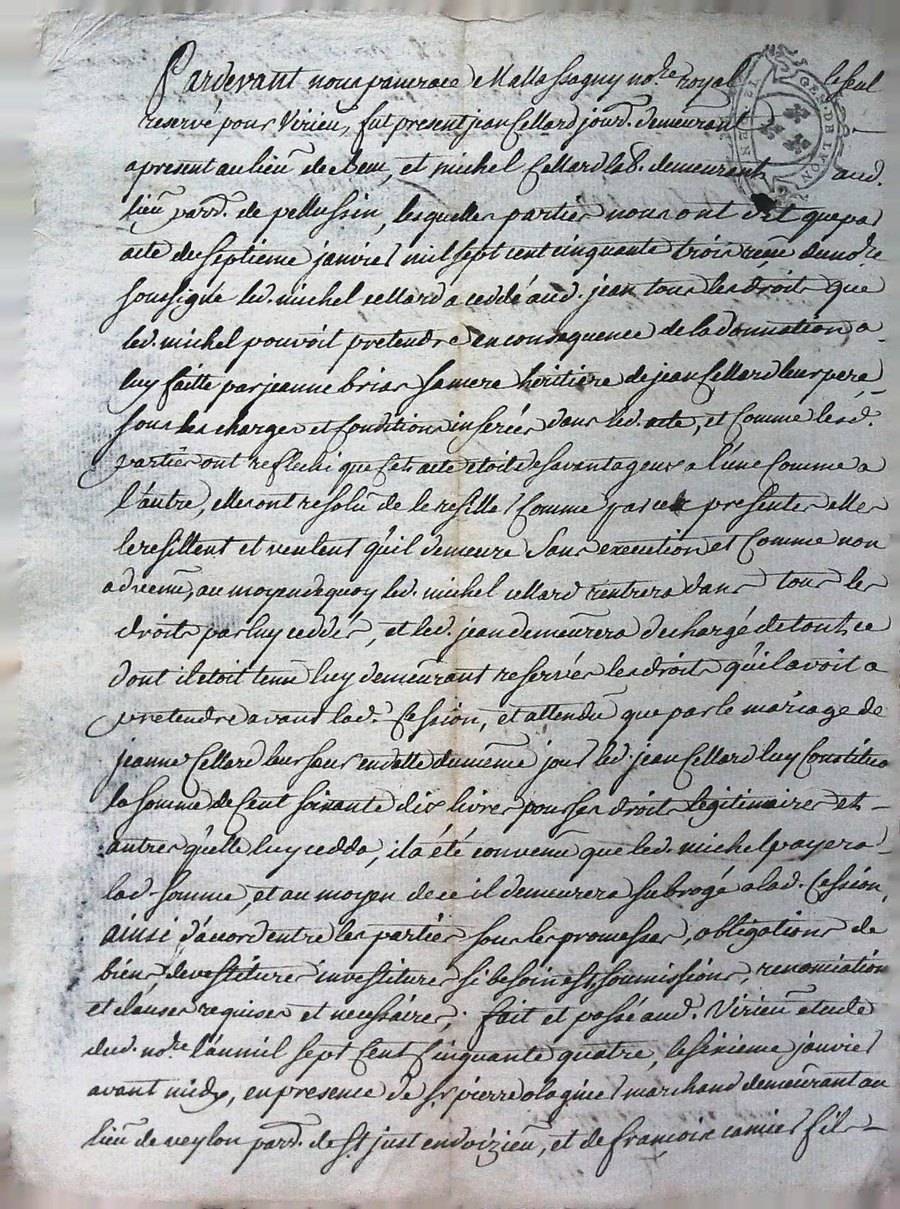 Pardevant nous pancrace Mallassagny no.re royal le seul
reservé pour Virieu, fut present jean Cellard jourd. demeurant
apresent au lieu de , et michel Cellard lab. demeurant aud.
lieu parr. de pellussin, lesquelles parties nous ont dit que par
acte du septieme janvier mil sept cent cinquante trois receu du no.re
soussigné led. michel cellard a ceddé aud. jean tous les droits que
led. michel pouvoit pretendre en consequence de la donnation a
luy faitte par jeanne brias sa mere heritiere de jean Cellard leur pere,
sous les charges et Conditions inserées dans led. acte, et Comme lesd.
parties ont reflechi que Cet acte etoit desavantageux a l'une Comme a
l'autre, elles ont resolu de le resiller Comme par ces presentes elles
le resillent et veulent qu'il demeure sans execution et Comme non
advenu, au moyen de quoy led. michel cellard rentrera dans tous les
droits par luy ceddés, et led. jean demeurera dechargé de tout ce
dont il etoit tenu luy demeurant reservés les droits qu'il avoit a
pretendre avant lad. Cession, et attendu que par le mariage de
jeanne Cellard leur sœur en datte du même jour led. jean Cellard luy Constitua
la somme de Cent soixante dix livres pour ses droits legitimaires et
autres qu'elle luy cedda, il a été convenu que led. michel payera
lad. somme, et au moyen de ce il demeurera subrogé a lad. Cession,
ainsi d'accord entre les parties sous les promesses, obligations de
biens, devestitures investitures si besoin est, soumissions, renonciations
et clauses requises et necessaires; fait et passé aud. Virieu etude
dud. no.re l'an mil sept Cent Cinquante quatre, le sixieme janvier
avant midy, en presence de s.r pierre olagnier marchand demeurant au
lieu de veylon parr. de s.t just en doizieu, et de françois camier fils
GEN. DE LYON